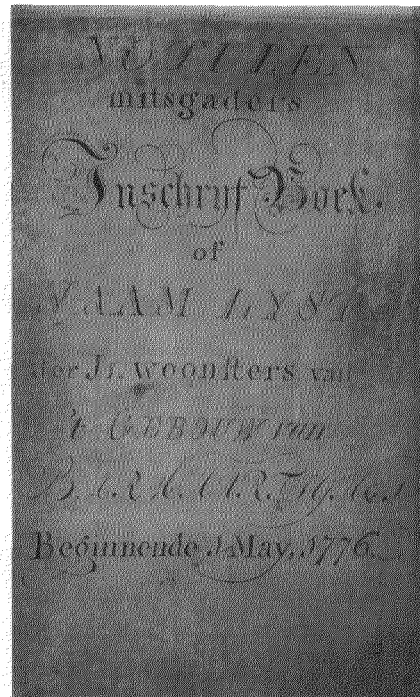 NOTULEN
mitsgaders
Inschryf Boek.
of
NAAM LYST
der Inwoonsters van
't GEBOUW van
Beginnende 1 May. 1776